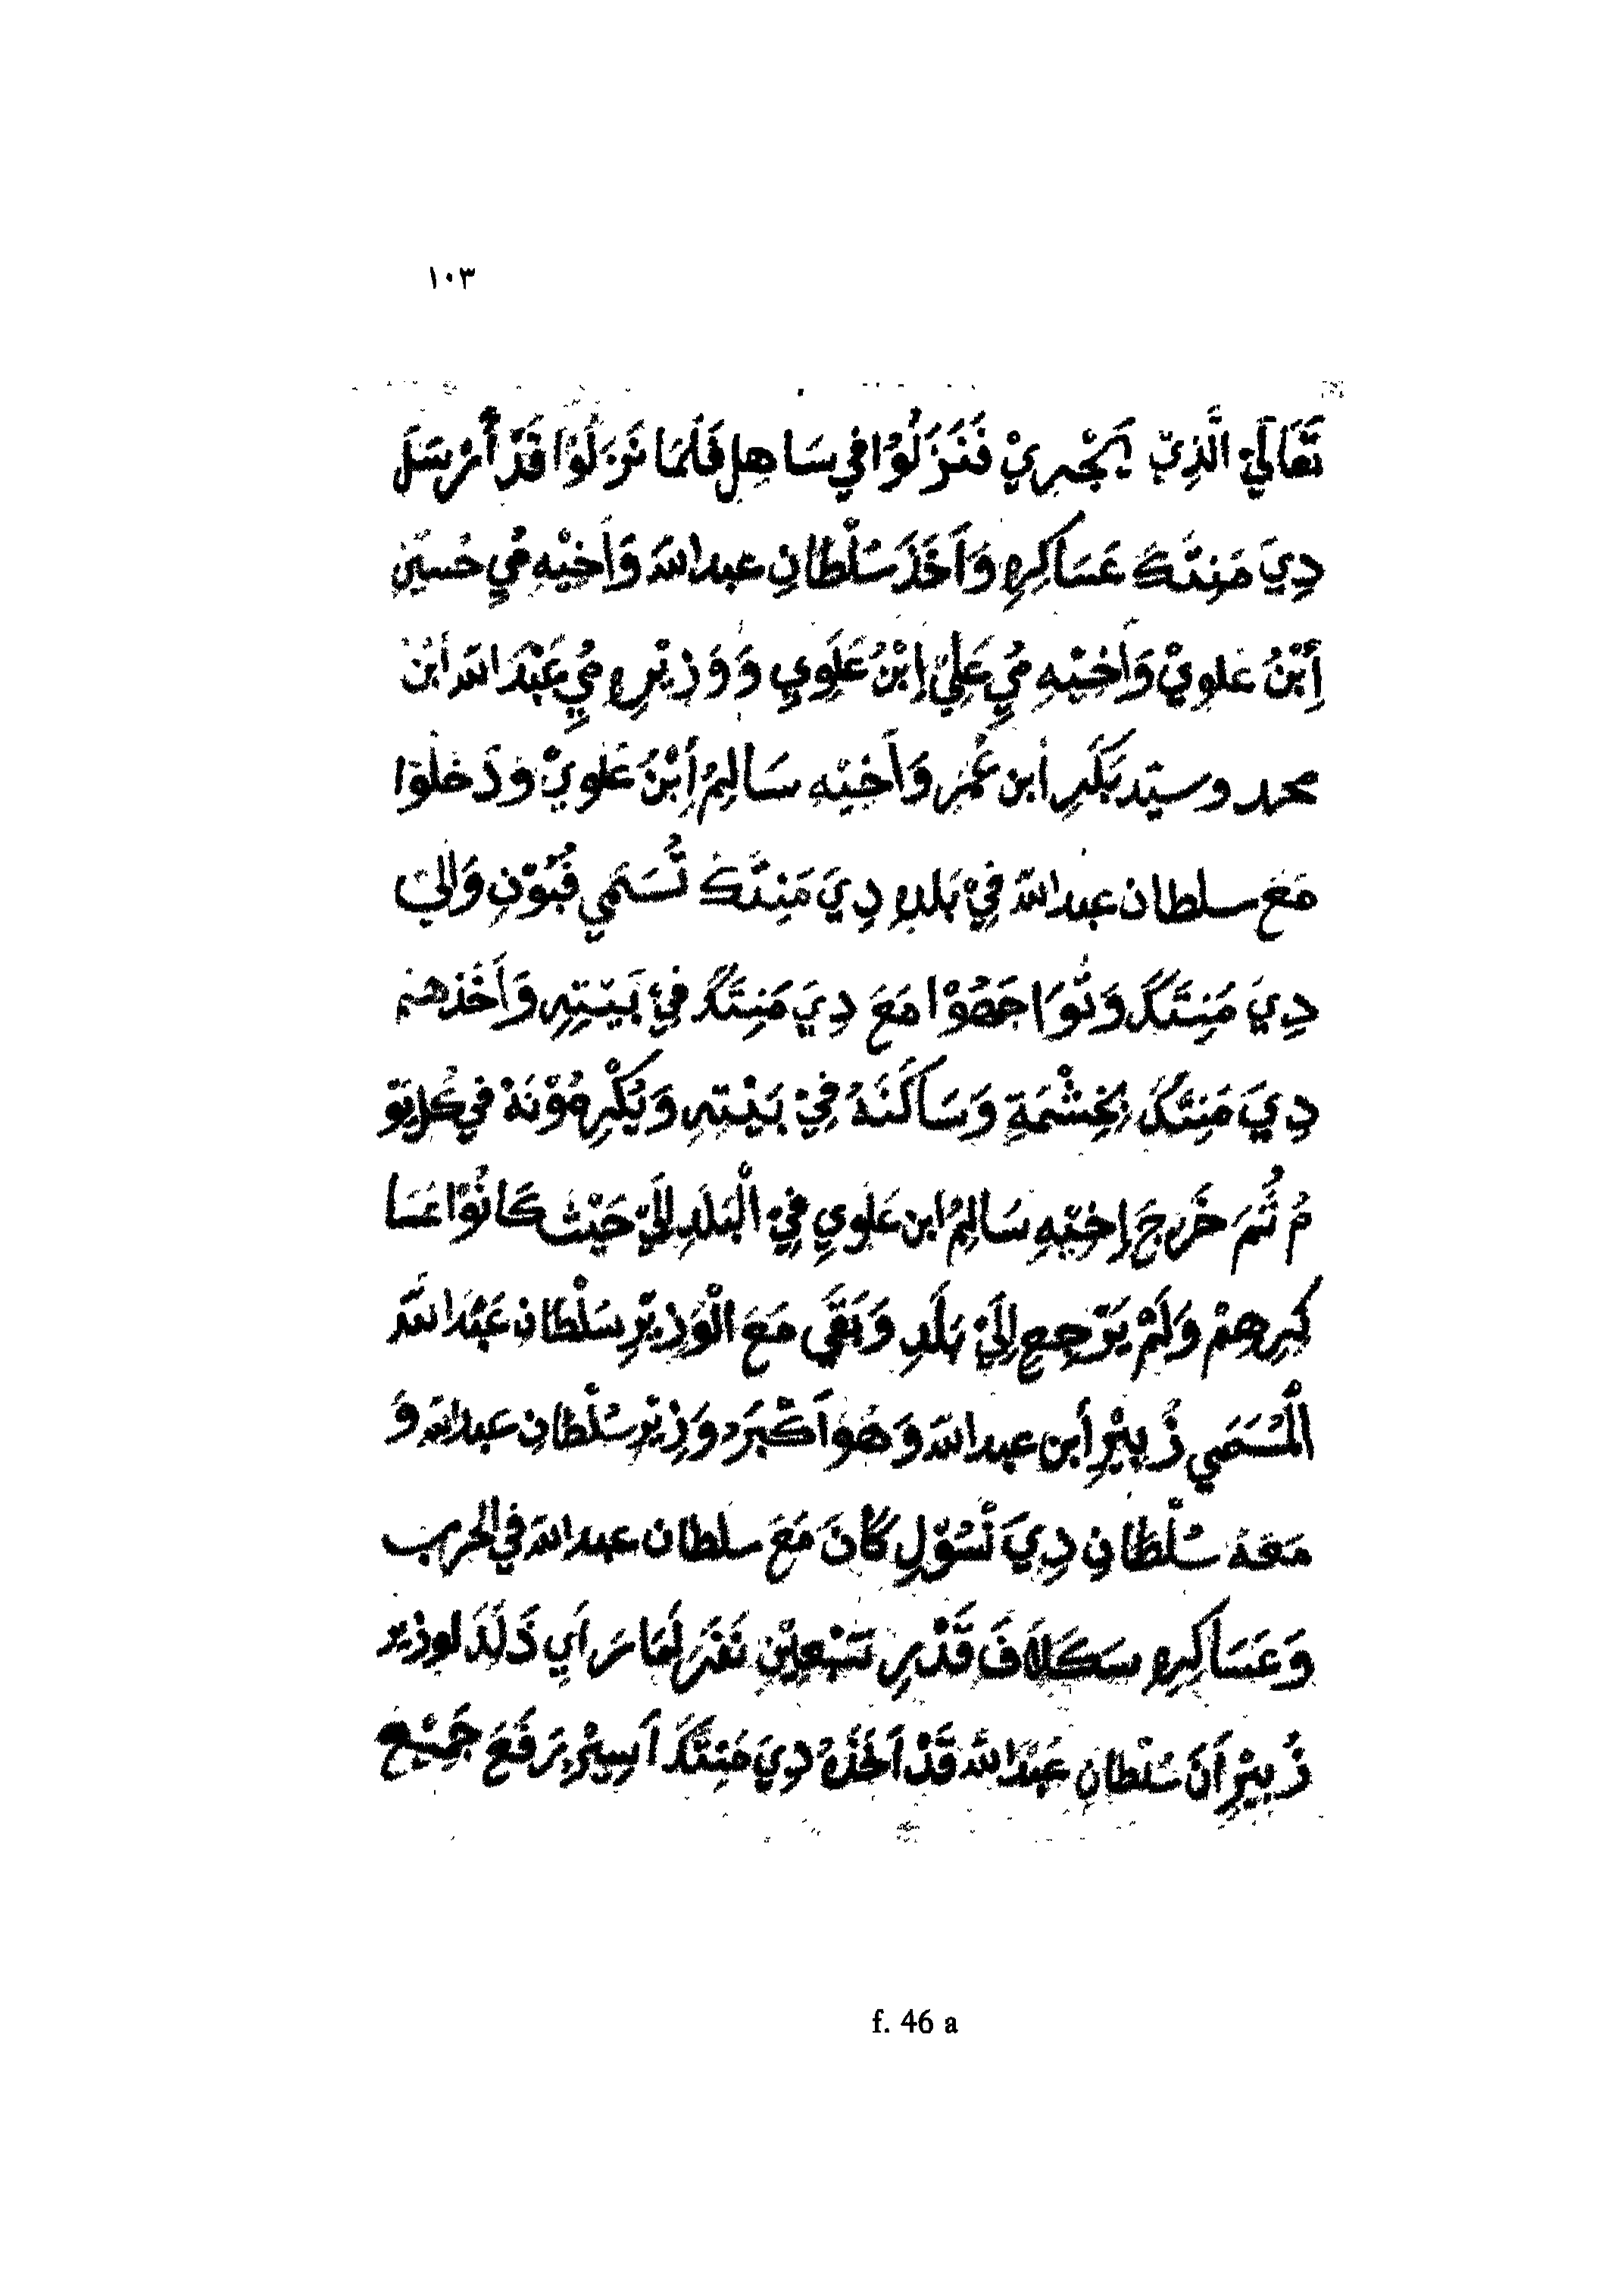 ١٠٣
تَعَالَيْ الَّذِيْ يَجْرِيْ فَنَزَلُوْا فِي سَاهِلِ فَلَمَا نَزَلُوْا قَدْ أَرْسَلَ
دِيَ مَنِتَكَ عَسَاكِرِهِ وَآَخَذَ سُلْطَانِ عبد اللهَ وَآَخِيْهِ مُيِ حُسَيْنِ
أِبْنُ علوِيْ وَآَخِيْهِ مُيِ عَلِيْ اِبْنُ عَلَوِيِ وَوَزِيْرِهِ مُيِ عَبْدَ اللهَ ابْنُ
محمد وسيّد بَكَرِ أبن عُمَرِ وَآَخِيْهِ سَالِمُ أِبْنُ عَلَوِيْ وَدَخَلُوْا
مَعَ سلطان عبد اللهَ فِيْ بَلَدِ دِيَ مَنِتَكَ تُسَمَي قُبُوْنِ وَالِيْ
دِيَ مَنِتَكَ وَتُوَاجَهُوْا مَعَ دِيَ مَنِتَكَ فِيْ بَيْتِهِ وَآَخَذَهُمْ
دِيَ مَنِتَكَ بِخِشْمَةِ وَسَاكَنَهُ فِيْ بَيْتِهِ وَيُكْرِمُوْنَهُ فِي كُلِ يَوْ
مُ ثُمَ خَرَجَ إِخِيْهِ سَالِمُ ابن عَلَوِيِ فِيْ الْبَلَدِ اِلَيْ حَيْثُ كَانُوْا عَسَا
كِرِهِمْ وَلَمْ يَرْجِعِ اِلَيْ بَلَدِ وَبَقَي مَعَ الْوَزِيْرِ سَلْطَانِ عَبْدَ اللهَ
الْمُسَمَي زُبِيْرِ أبن عبد اللهَ وَهُوَ آَكْبَرُ وَزِيْرِ سُلْطَانِ عبد اللهَ وَ
مَعَهُ سُلْطَانِ دِيَ نْسُوْلِ كَانَ مَعَ سلطان عبد اللهَ فِي الحرب
وَعَسَاكِرِهِ سَكَلَافَ قَدْرِ تَسْعِيْنِ نَفَرُ لَمَا رَآَيِ ذَلِكَ لوزير
زُبِيْرِ آَنَ سُلْطَانِ عَبْدَ اللهَ قَدْ آَخَذَهُ دِيَ مَنِتَكَ آَسِيْرُ رَفَعَ جَمِيْعِ
f. 46 a